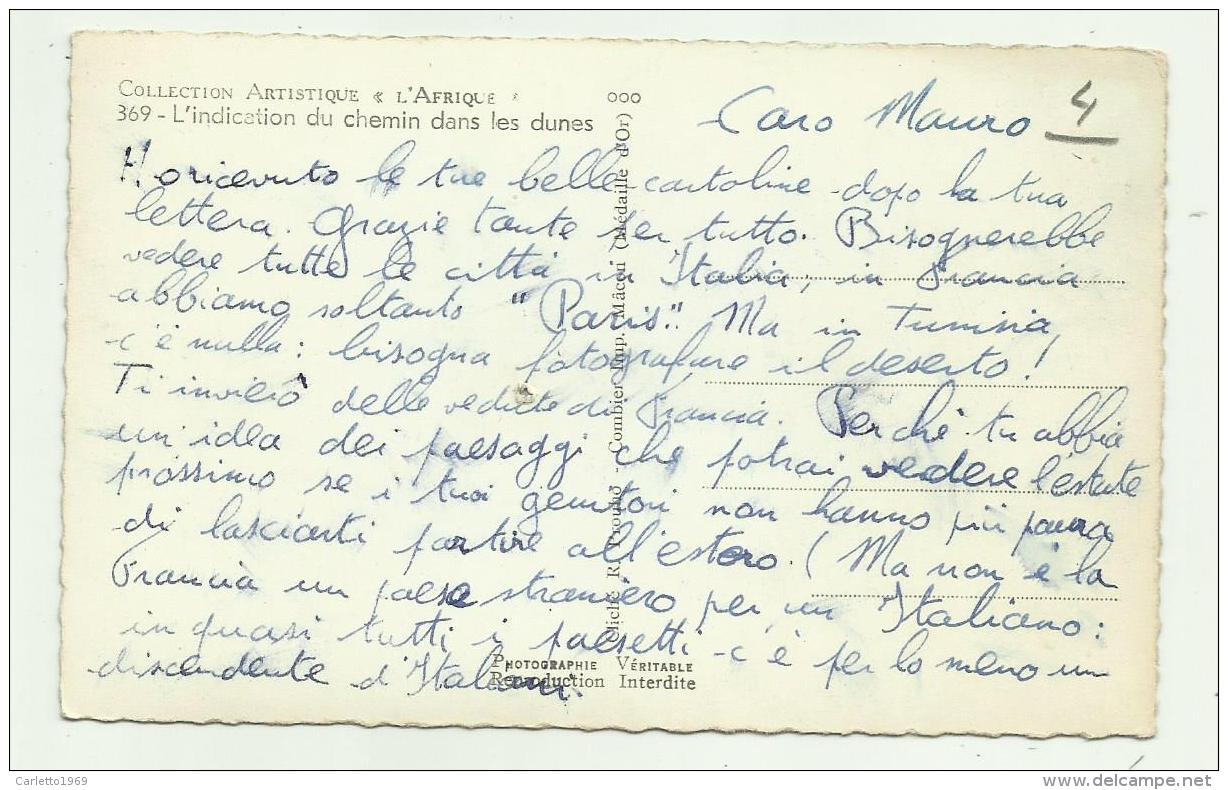 COLLECTION ARTISTIQUE « L'AFRIQUE »
369 - L'indication du chemin dans les dunes
000
Caro Mauro
4
Ho ricevuto le tue belle cartoline dopo la tua
lettera. Grazie tante per tutto. Bisognerebbe
vedere tutte le città in Italia, in Francia
abbiamo soltanto "Paris". Ma in Tunisia,
c'è nulla: bisogna fotografare il deserto!
Ti invierò delle vedute di Francia. Perchè tu abbia
un'idea dei paesaggi che potrai vedere l'estate
prossimo se i tuoi genitori non hanno più paura
di lasciarti partire all'estero. (Ma non è la
Francia un paese straniero per un Italiano:
in quasi tutti i paesetti c'è per lo meno un
discendente d'Italiani.
Cliché R. - Combier Imp. Mâcon (Médaille d'Or)
PHOTOGRAPHIE VÉRITABLE
Reproduction Interdite
Carletto1969
www.delcampe.net